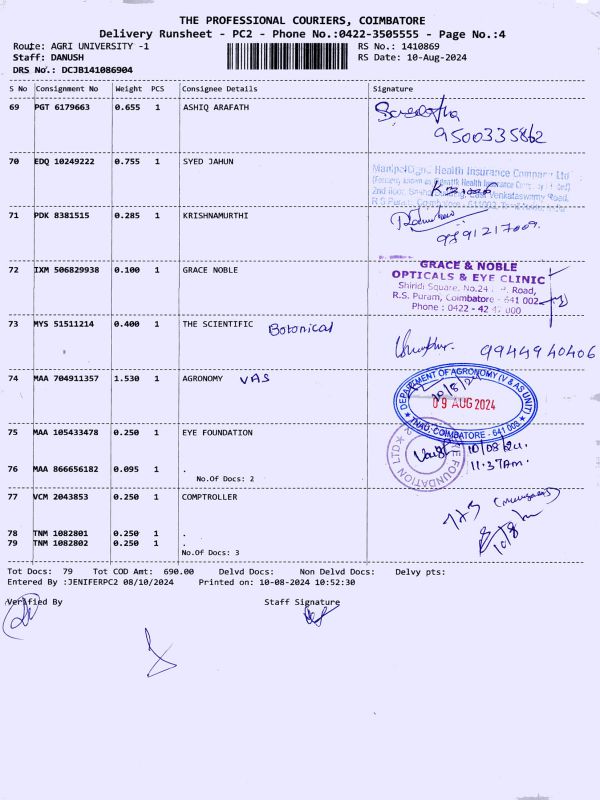 THE PROFESSIONAL COURIERS, COIMBATORE
Delivery Runsheet - PC2 - Phone No.:0422-3505555 - Page No.:4
Route: AGRI UNIVERSITY -1 RS No.: 1410869
Staff: DANUSH RS Date: 10-Aug-2024
DRS No.: DCJB141086904
S No Consignment No Weight PCS Consignee Details Signature
69 PGT 6179663 0.655 1 ASHIQ ARAFATH
9500335862
70 EDQ 10249222 0.755 1 SYED JAHUN
ManipalCigna Health Insurance Company Ltd
71 PDK 8381515 0.285 1 KRISHNAMURTHI
9791217009.
72 IXM 506829938 0.100 1 GRACE NOBLE
GRACE & NOBLE
OPTICALS & EYE CLINIC
Shiridi Square, No.24 Road,
R.S. Puram, Coimbatore - 641 002
Phone : 0422 - 42 000
73 MYS 51511214 0.400 1 THE SCIENTIFIC Botonical
9944940406
74 MAA 704911357 1.530 1 AGRONOMY VAS
DEPARTMENT OF AGRONOMY (V & AS UNIT)
10/8/24
09 AUG 2024
TNAU, COIMBATORE - 641 003
75 MAA 105433478 0.250 1 EYE FOUNDATION
10/08/24
11:37Am.
76 MAA 866656182 0.095 1 .
No.Of Docs: 2
77 VCM 2043853 0.250 1 COMPTROLLER
78 TNM 1082801 0.250 1 .
79 TNM 1082802 0.250 1 .
No.Of Docs: 3
Tot Docs: 79 Tot COD Amt: 690.00 Delvd Docs: Non Delvd Docs: Delvy pts:
Entered By :JENIFERPC2 08/10/2024 Printed on: 10-08-2024 10:52:30
Verified By Staff Signature